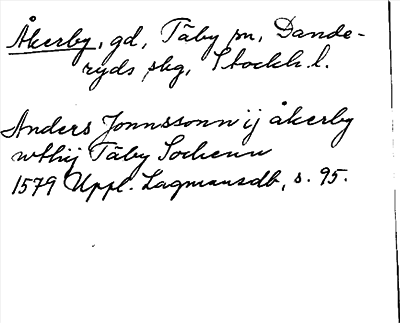 Åkerby, gd, Täby sn, Dande-
ryds skg, Stockh. l.
Anders Jonnssonn ij åkerby
wthij Täby Sochenn
1579 Uppl. Lagmansdb, s. 95.